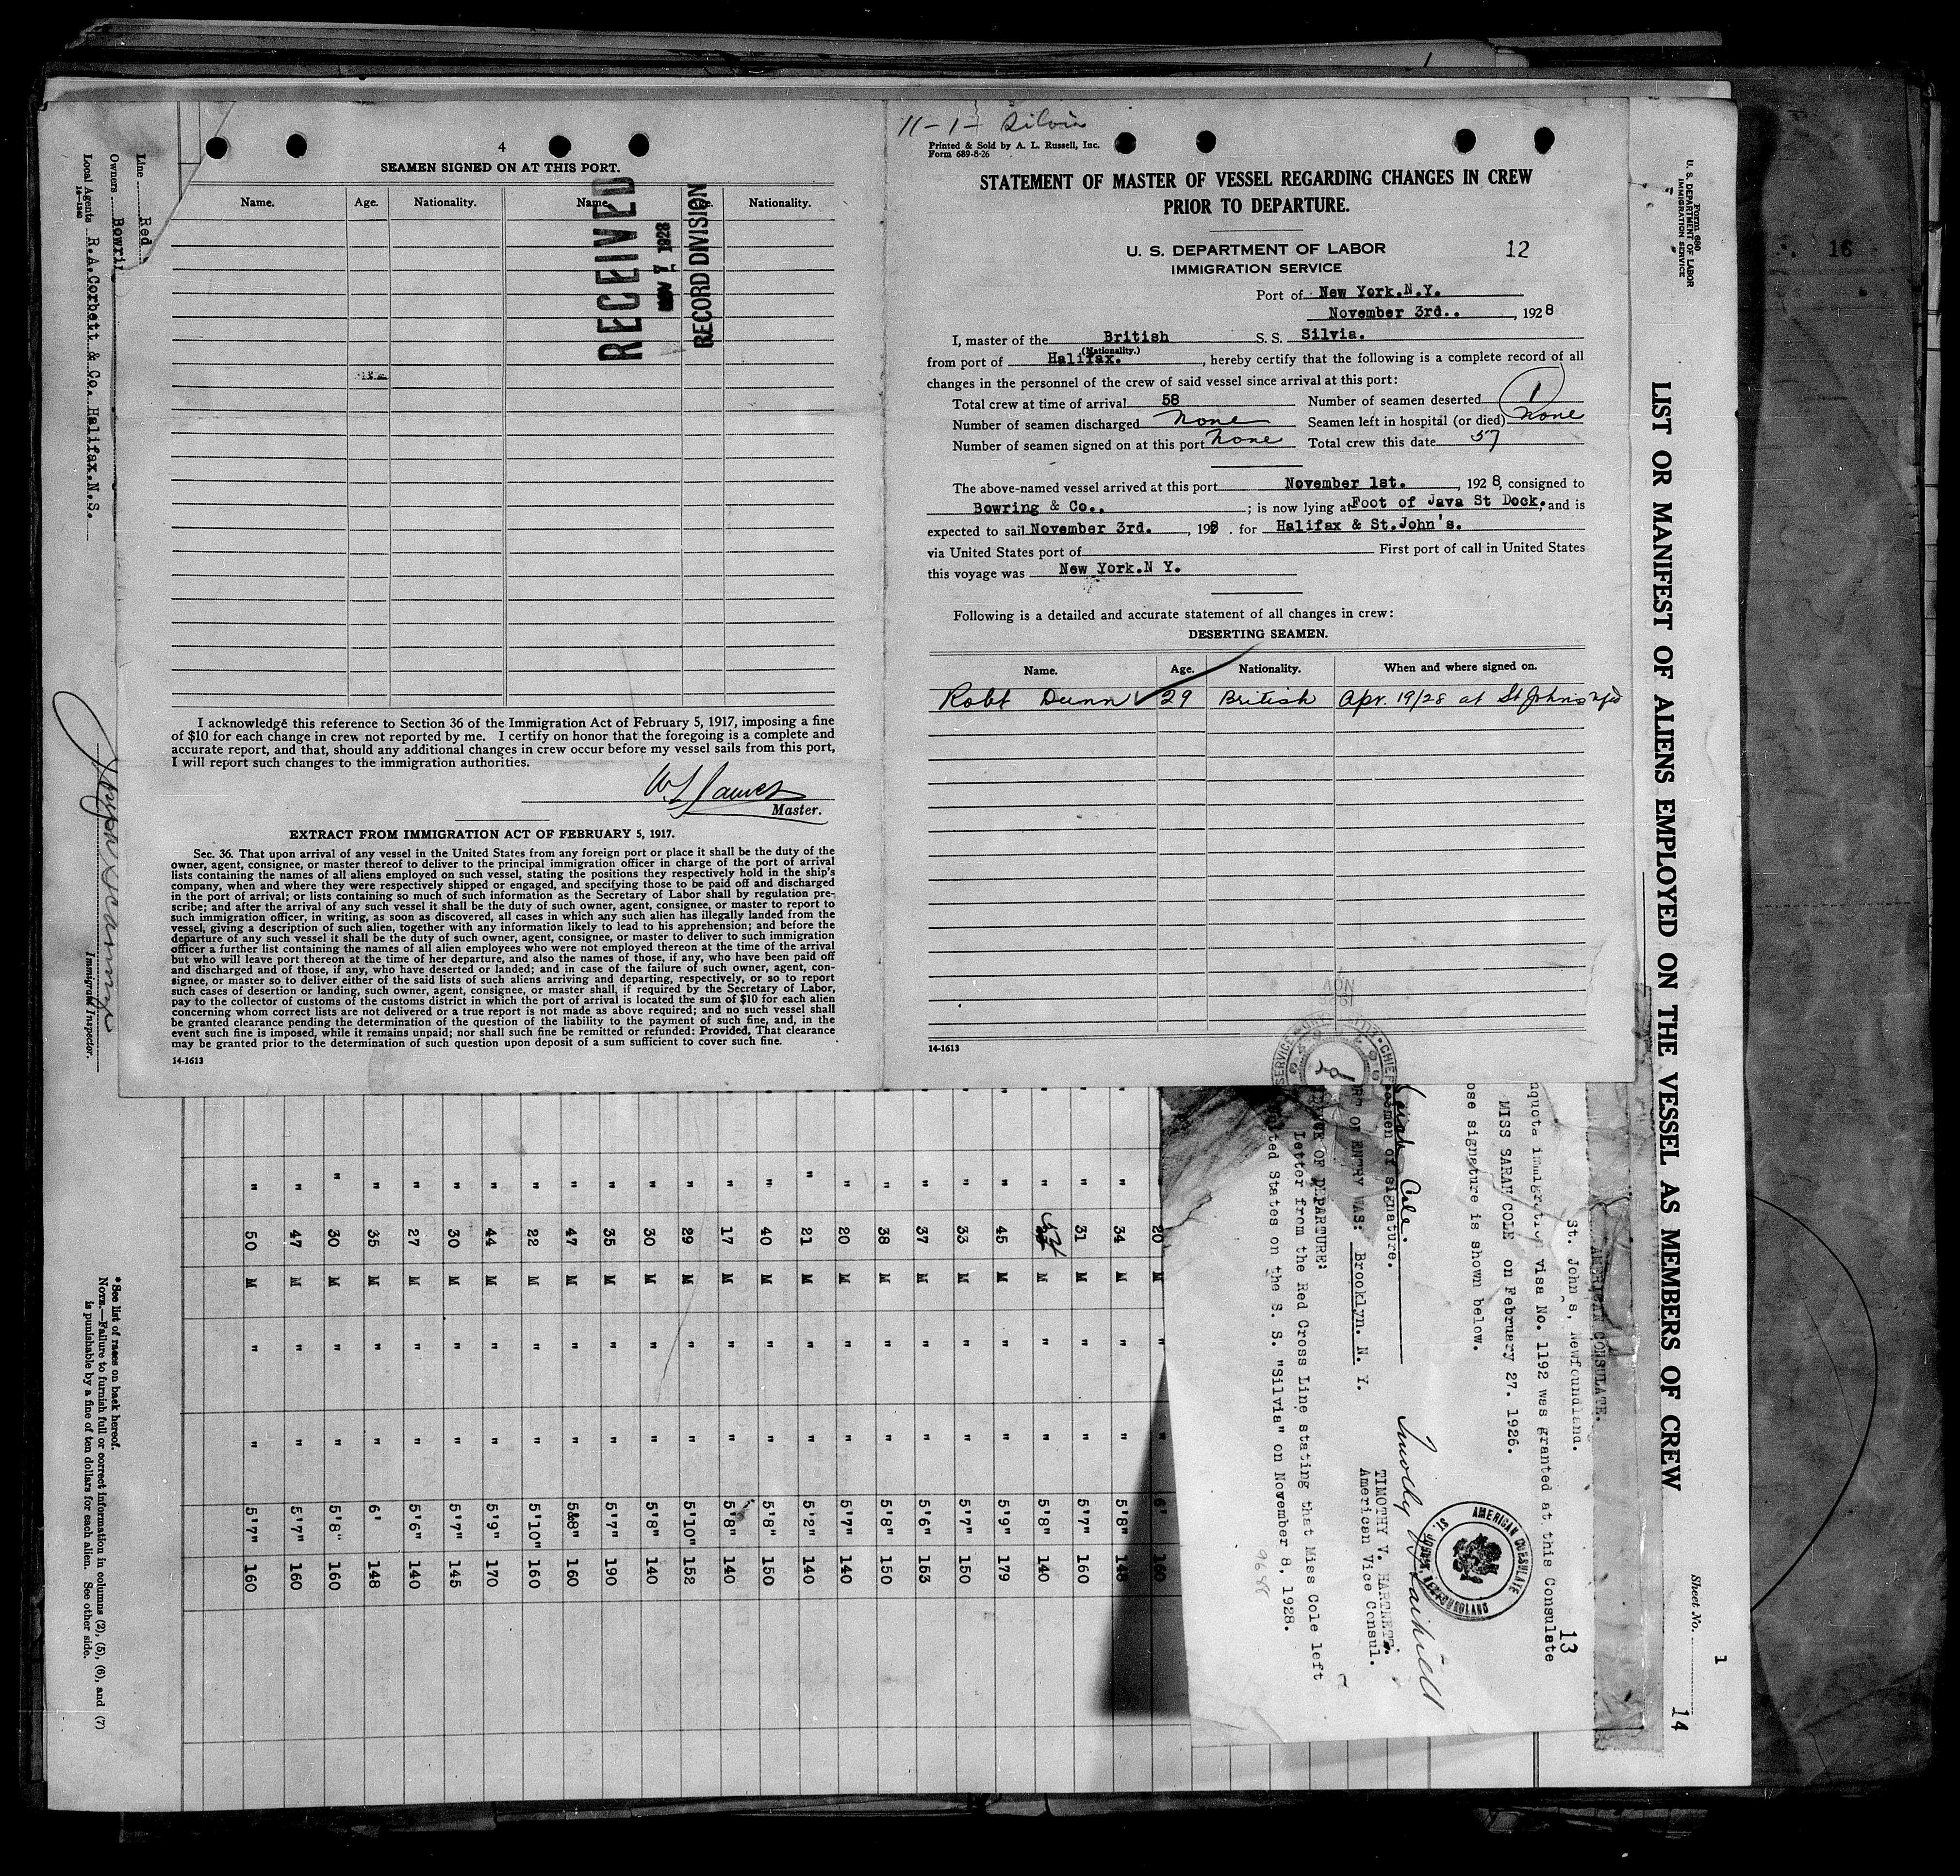 11-1- Silvia
4
SEAMEN SIGNED ON AT THIS PORT.
Name. Age. Nationality. Name. Nationality.
RECEIVED
NOV 7 1928
RECORD DIVISION
I acknowledge this reference to Section 36 of the Immigration Act of February 5, 1917, imposing a fine
of $10 for each change in crew not reported by me. I certify on honor that the foregoing is a complete and
accurate report, and that, should any additional changes in crew occur before my vessel sails from this port,
I will report such changes to the immigration authorities.
Master.
EXTRACT FROM IMMIGRATION ACT OF FEBRUARY 5, 1917.
Sec. 36. That upon arrival of any vessel in the United States from any foreign port or place it shall be the duty of the
owner, agent, consignee, or master thereof to deliver to the principal immigration officer in charge of the port of arrival
lists containing the names of all aliens employed on such vessel, stating the positions they respectively hold in the ship's
company, when and where they were respectively shipped or engaged, and specifying those to be paid off and discharged
in the port of arrival; or lists containing so much of such information as the Secretary of Labor shall by regulation pre-
scribe; and after the arrival of any such vessel it shall be the duty of such owner, agent, consignee, or master to report to
such immigration officer, in writing, as soon as discovered, all cases in which any such alien has illegally landed from the
vessel, giving a description of such alien, together with any information likely to lead to his apprehension; and before the
departure of any such vessel it shall be the duty of such owner, agent, consignee, or master to deliver to such immigration
officer a further list containing the names of all alien employees who were not employed thereon at the time of the arrival
but who will leave port thereon at the time of her departure, and also the names of those, if any, who have been paid off
and discharged and of those, if any, who have deserted or landed; and in case of the failure of such owner, agent, con-
signee, or master so to deliver either of the said lists of such aliens arriving and departing, respectively, or so to report
such cases of desertion or landing, such owner, agent, consignee, or master shall, if required by the Secretary of Labor,
pay to the collector of customs of the customs district in which the port of arrival is located the sum of $10 for each alien
concerning whom correct lists are not delivered or a true report is not made as above required; and no such vessel shall
be granted clearance pending the determination of the question of the liability to the payment of such fine, and, in the
event such fine is imposed, while it remains unpaid; nor shall such fine be remitted or refunded: Provided, That clearance
may be granted prior to the determination of such question upon deposit of a sum sufficient to cover such fine.
14-1613
Printed & Sold by A. L. Russell, Inc.
Form 689-8-26
STATEMENT OF MASTER OF VESSEL REGARDING CHANGES IN CREW
PRIOR TO DEPARTURE.
U. S. DEPARTMENT OF LABOR
12
IMMIGRATION SERVICE
Port of New York.N.Y.
November 3rd.. , 1928
I, master of the British S. S. Silvia.
(Nationality.)
from port of Halifax. , hereby certify that the following is a complete record of all
changes in the personnel of the crew of said vessel since arrival at this port:
Total crew at time of arrival 58 Number of seamen deserted 1
Number of seamen discharged None Seamen left in hospital (or died) None
Number of seamen signed on at this port None Total crew this date 57
The above-named vessel arrived at this port November 1st. , 1928, consigned to
Bowring & Co.. ; is now lying at Foot of Java St Dock. , and is
expected to sail November 3rd. , 198 . for Halifax & St.John's.
via United States port of First port of call in United States
this voyage was New York.N Y.
Following is a detailed and accurate statement of all changes in crew:
DESERTING SEAMEN.
Name. Age. Nationality. When and where signed on.
Robt Dunn 29 British Apr. 19/28 at St Johns Nfd
14-1613
Form 680
U. S. DEPARTMENT OF LABOR
IMMIGRATION SERVICE
LIST OR MANIFEST OF ALIENS EMPLOYED ON THE VESSEL AS MEMBERS OF CREW
Sheet No. 1
14
16
AMERICAN CONSULATE.
St. John's, Newfoundland.
13
nquota immigration visa No. 1192 was granted at this Consulate
MISS SARAH COLE on February 27. 1926.
ose signature is shown below.
Sarah Cole
men of signature.
OF ENTRY WAS: Brooklyn. N. Y.
OF DEPARTURE:
Letter from the Red Cross Line stating that Miss Cole left
ted States on the S. S. "Silvia" on November 8, 1928.
TIMOTHY V. HARTNETT.
American Vice Consul.
AMERICAN CONSULATE
ST. JOHN'S, NEWFOUNDLAND
20 M " " 6' 160
" 34 M " " 5'8" 148
" 31 M " " 5'7" 160
" M " " 5'8" 140
" 45 M " " 5'9" 179
" 33 M " " 5'7" 150
" 37 M " " 5'6" 153
" 38 M " " 5'8" 150
" 20 M " " 5'7" 140
" 21 M " " 5'2" 140
" 40 M " " 5'8" 150
" 17 M " " 5'8" 140
" 29 M " " 5'10" 152
" 30 M " " 5'8" 140
" 35 M " " 5'7" 190
" 47 M " " 5&8" 160
" 22 M " " 5'10" 160
" 44 M " " 5'9" 170
" 30 M " " 5'7" 145
" 27 M " " 5'6" 140
" 35 M " " 6' 148
" 30 M " " 5'8" 160
" 47 M " " 5'7" 160
" 50 M " " 5'7" 160
Line Red
Owners Bowri
Local Agents R.A.Corbett & Co. Halifax.N.S.
14-1240
Immigrant Inspector.
* See list of races on back hereof.
NOTE.—Failure to furnish full or correct information in columns (2), (5), (6), and (7)
is punishable by a fine of ten dollars for each alien. See other side.